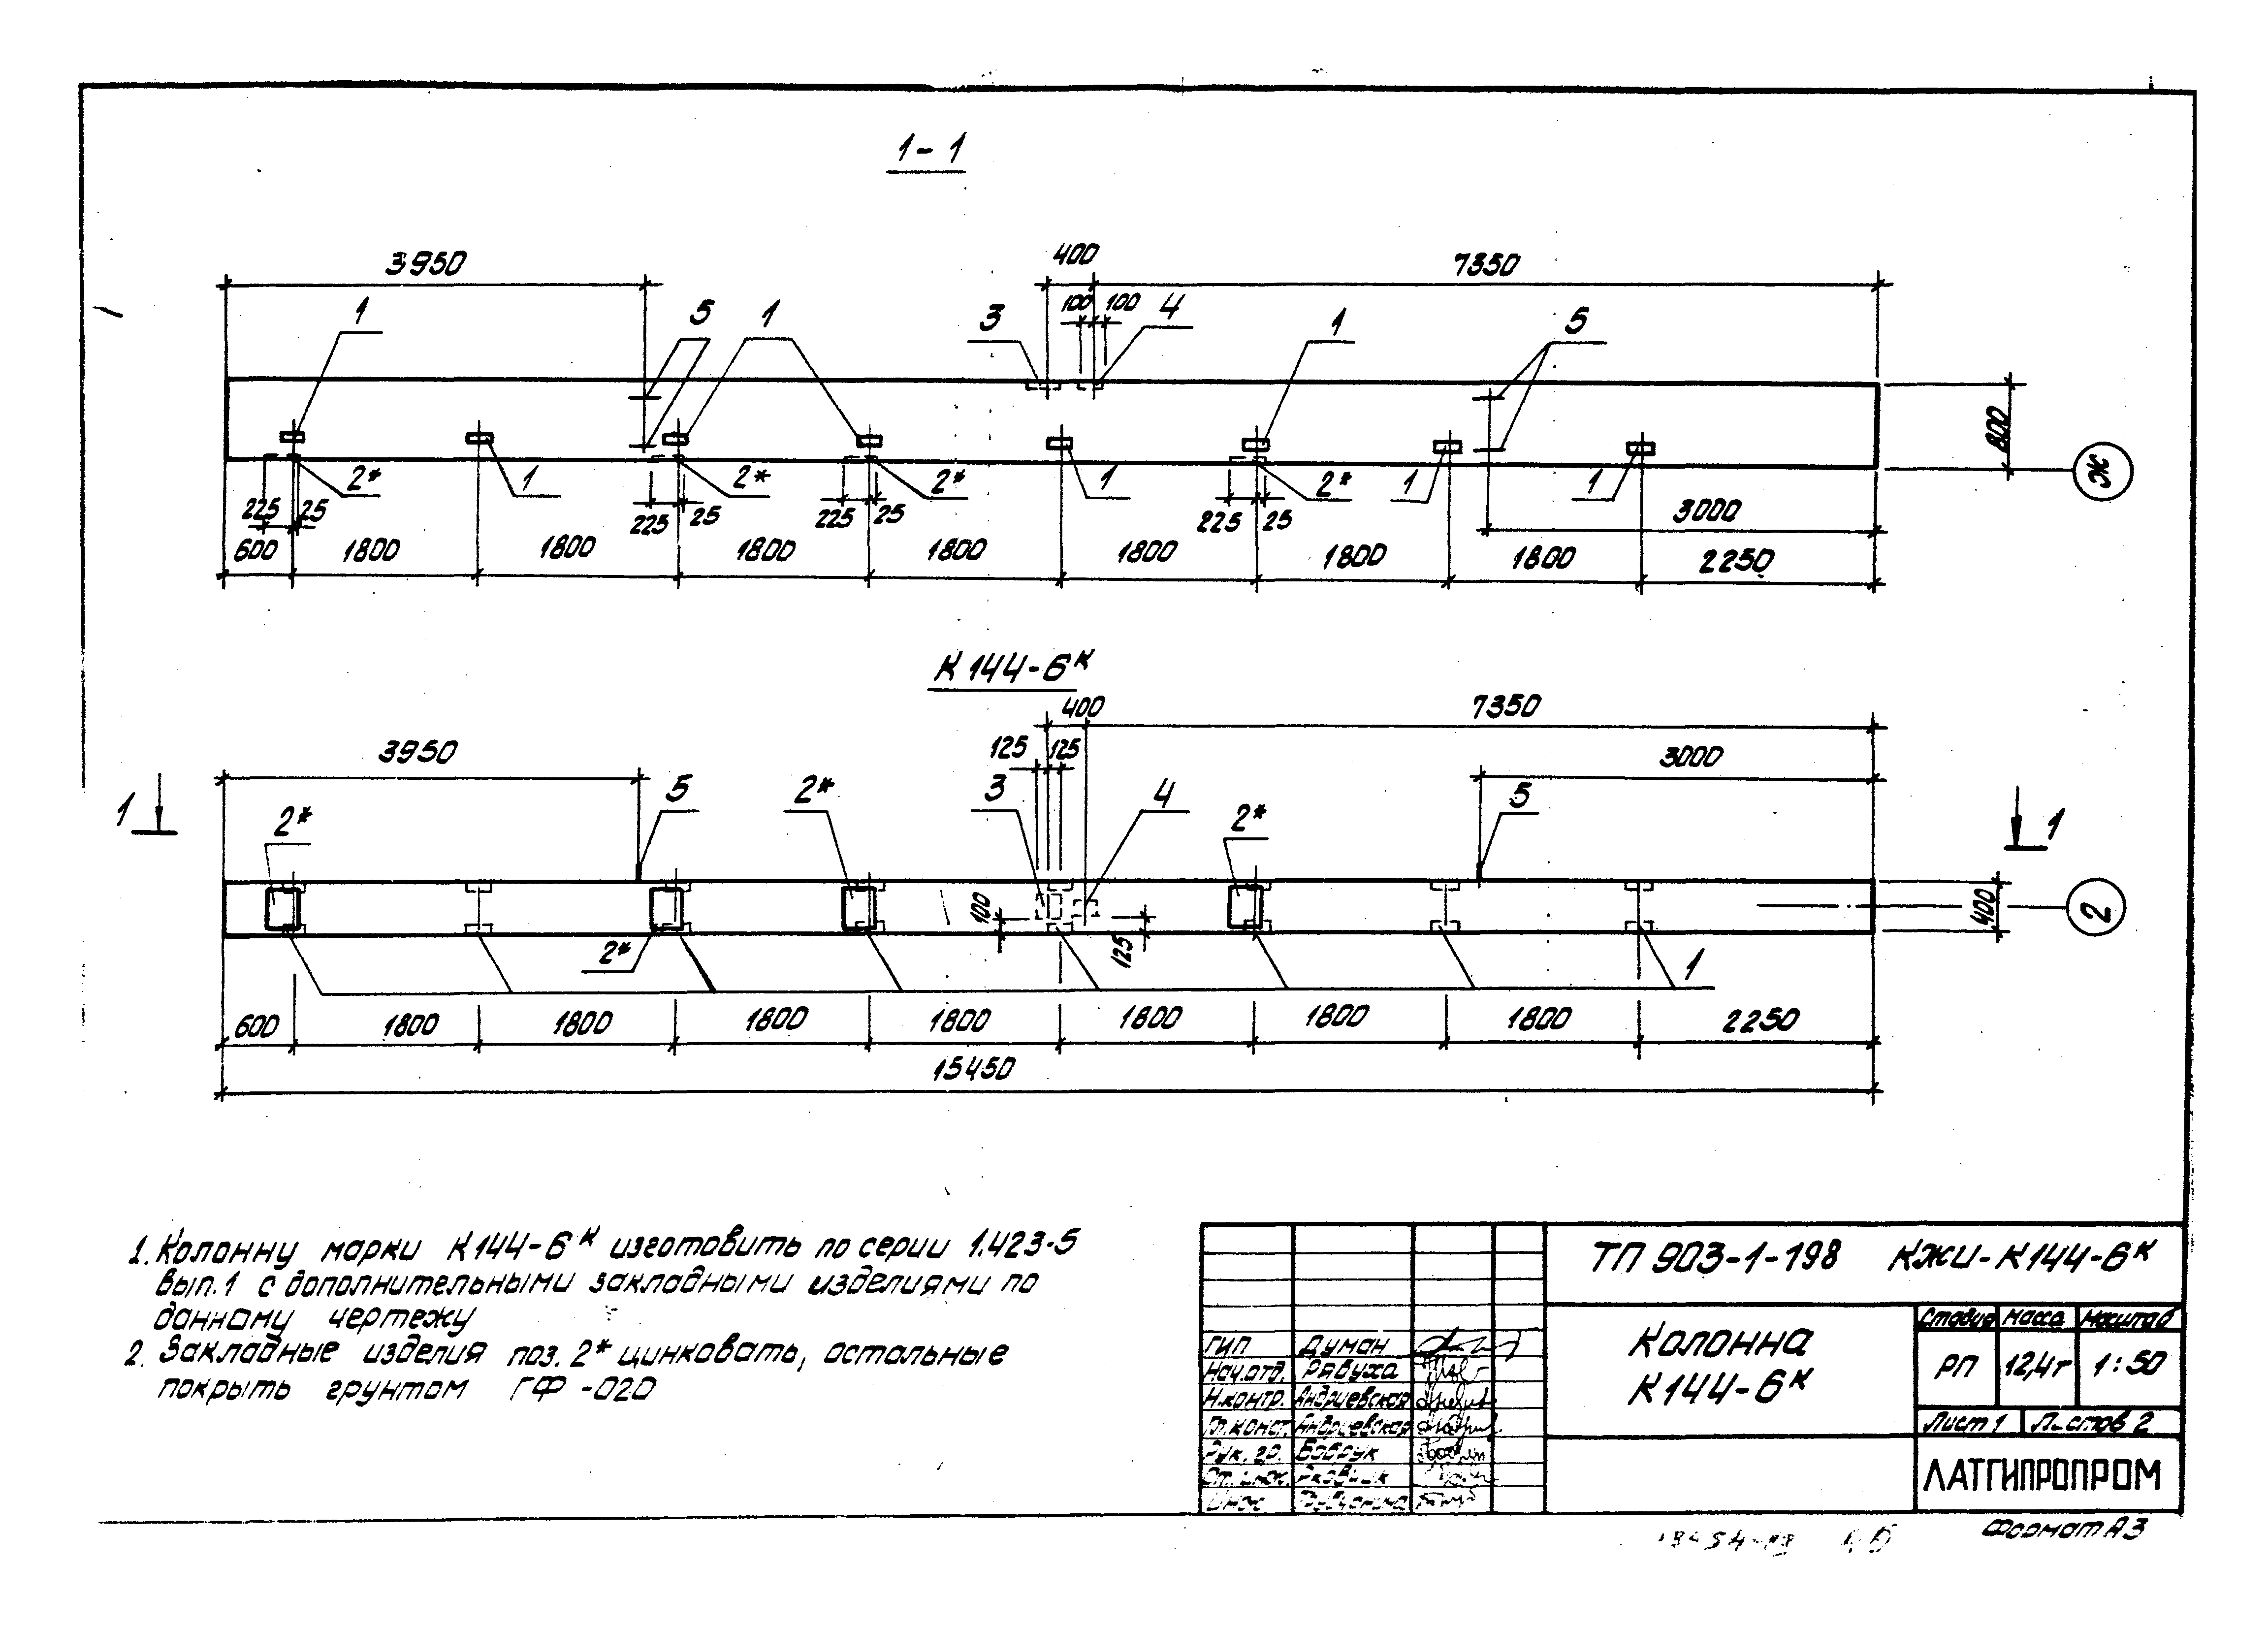 1-1
3950
400
7350
1
5
1
3
100
100
4
1
5
800
Ж
2*
1
2*
2*
1
2*
1
1
225
25
225
25
225
25
225
25
3000
600
1800
1800
1800
1800
1800
1800
1800
2250
К144-6К
400
7350
3950
125
125
3000
1
2*
5
2*
3
4
2*
5
1
100
125
400
2
2*
1
600
1800
1800
1800
1800
1800
1800
1800
2250
15450
1. Колонну марки К144-6К изготовить по серии 1.423-5
вып.1 с дополнительными закладными изделиями по
данному чертежу
2. Закладные изделия поз. 2* цинковать, остальные
покрыть грунтом ГФ-020
ТП 903-1-198 КЖИ-К144-6К
Колонна
К144-6К
Стадия Масса Масштаб
РП 12,4т 1:50
Лист 1 Листов 2
ЛАТГИПРОПРОМ
ГИП Думан
Нач.отд. Рябуха
Н.контр. Андриевская
Гл.конст. Андриевская
Рук. гр. Бобрук
Ст. инж.
Инж
Формат А3